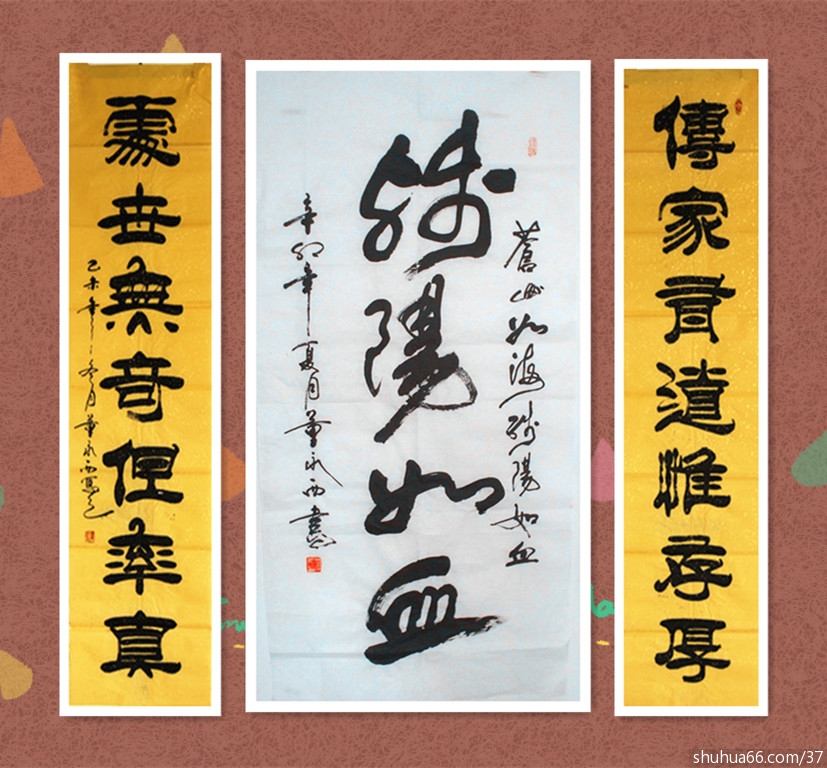 傳家有道惟存厚
蒼山如海殘陽如血
殘陽如血
辛卯年夏月董永西書
處世無奇但率真
己未年冬月董永西寫之
shuhua66.com/37